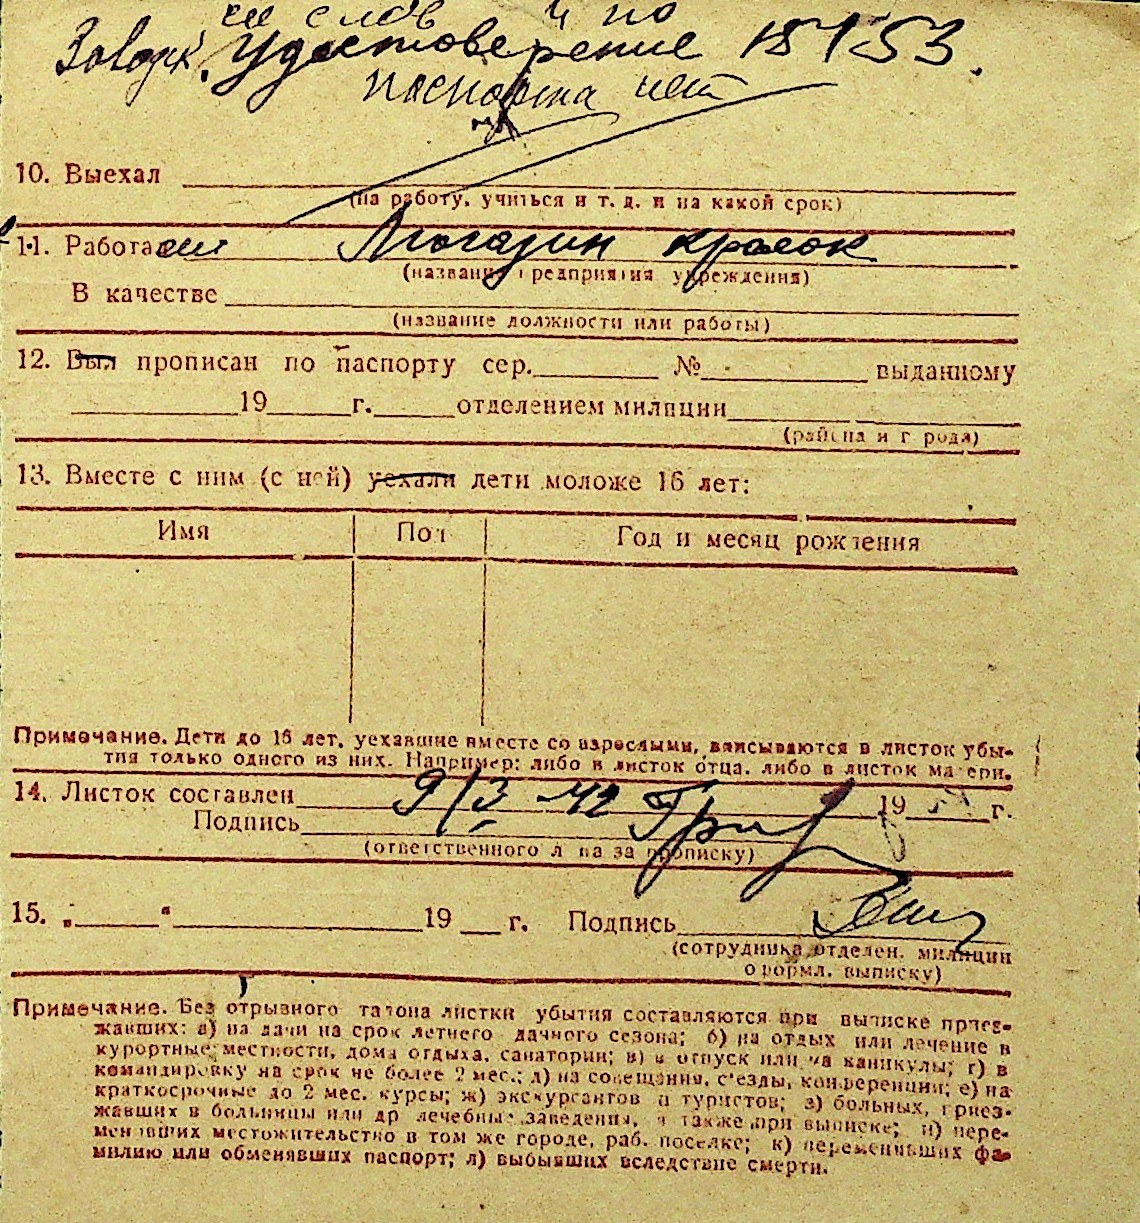 ее слов и по
Удостоверение 15153.
паспорта нет
10. Выехал
(на работу, учиться и т. д. и на какой срок)
11. Работа Магазин красок
(название предприятия учреждения)
В качестве
(название должности или работы)
12. Был прописан по паспорту сер. № выданному
19 г. отделением милиции
(района и города)
13. Вместе с ним (с ней) уехали дети моложе 16 лет:
Имя Пол Год и месяц рождения
Примечание. Дети до 16 лет, уехавшие вместе со взрослыми, вписываются в листок убы-
тия только одного из них. Например: либо в листок отца, либо в листок матери.
14. Листок составлен 9/3 42 19 г.
Подпись
(ответственного лица за прописку)
15. „ “ 19 г. Подпись
(сотрудника отделен. милиции
оформл. выписку)
Примечание. Без отрывного талона листки убытия составляются при выписке приез-
жавших: а) на дачи на срок летнего дачного сезона; б) на отдых или лечение в
курортные местности, дома отдыха, санатории; в) в отпуск или на каникулы; г) в
командировку на срок не более 2 мес.; д) на совещания, съезды, конференции; е) на
краткосрочные до 2 мес. курсы; ж) экскурсантов и туристов; з) больных, приез-
жавших в больницы или др лечебные заведения, а также при выписке; и) пере-
менивших местожительство в том же городе, раб. поселке; к) переменивших фа-
милию или обменявших паспорт; л) выбывших вследствие смерти.